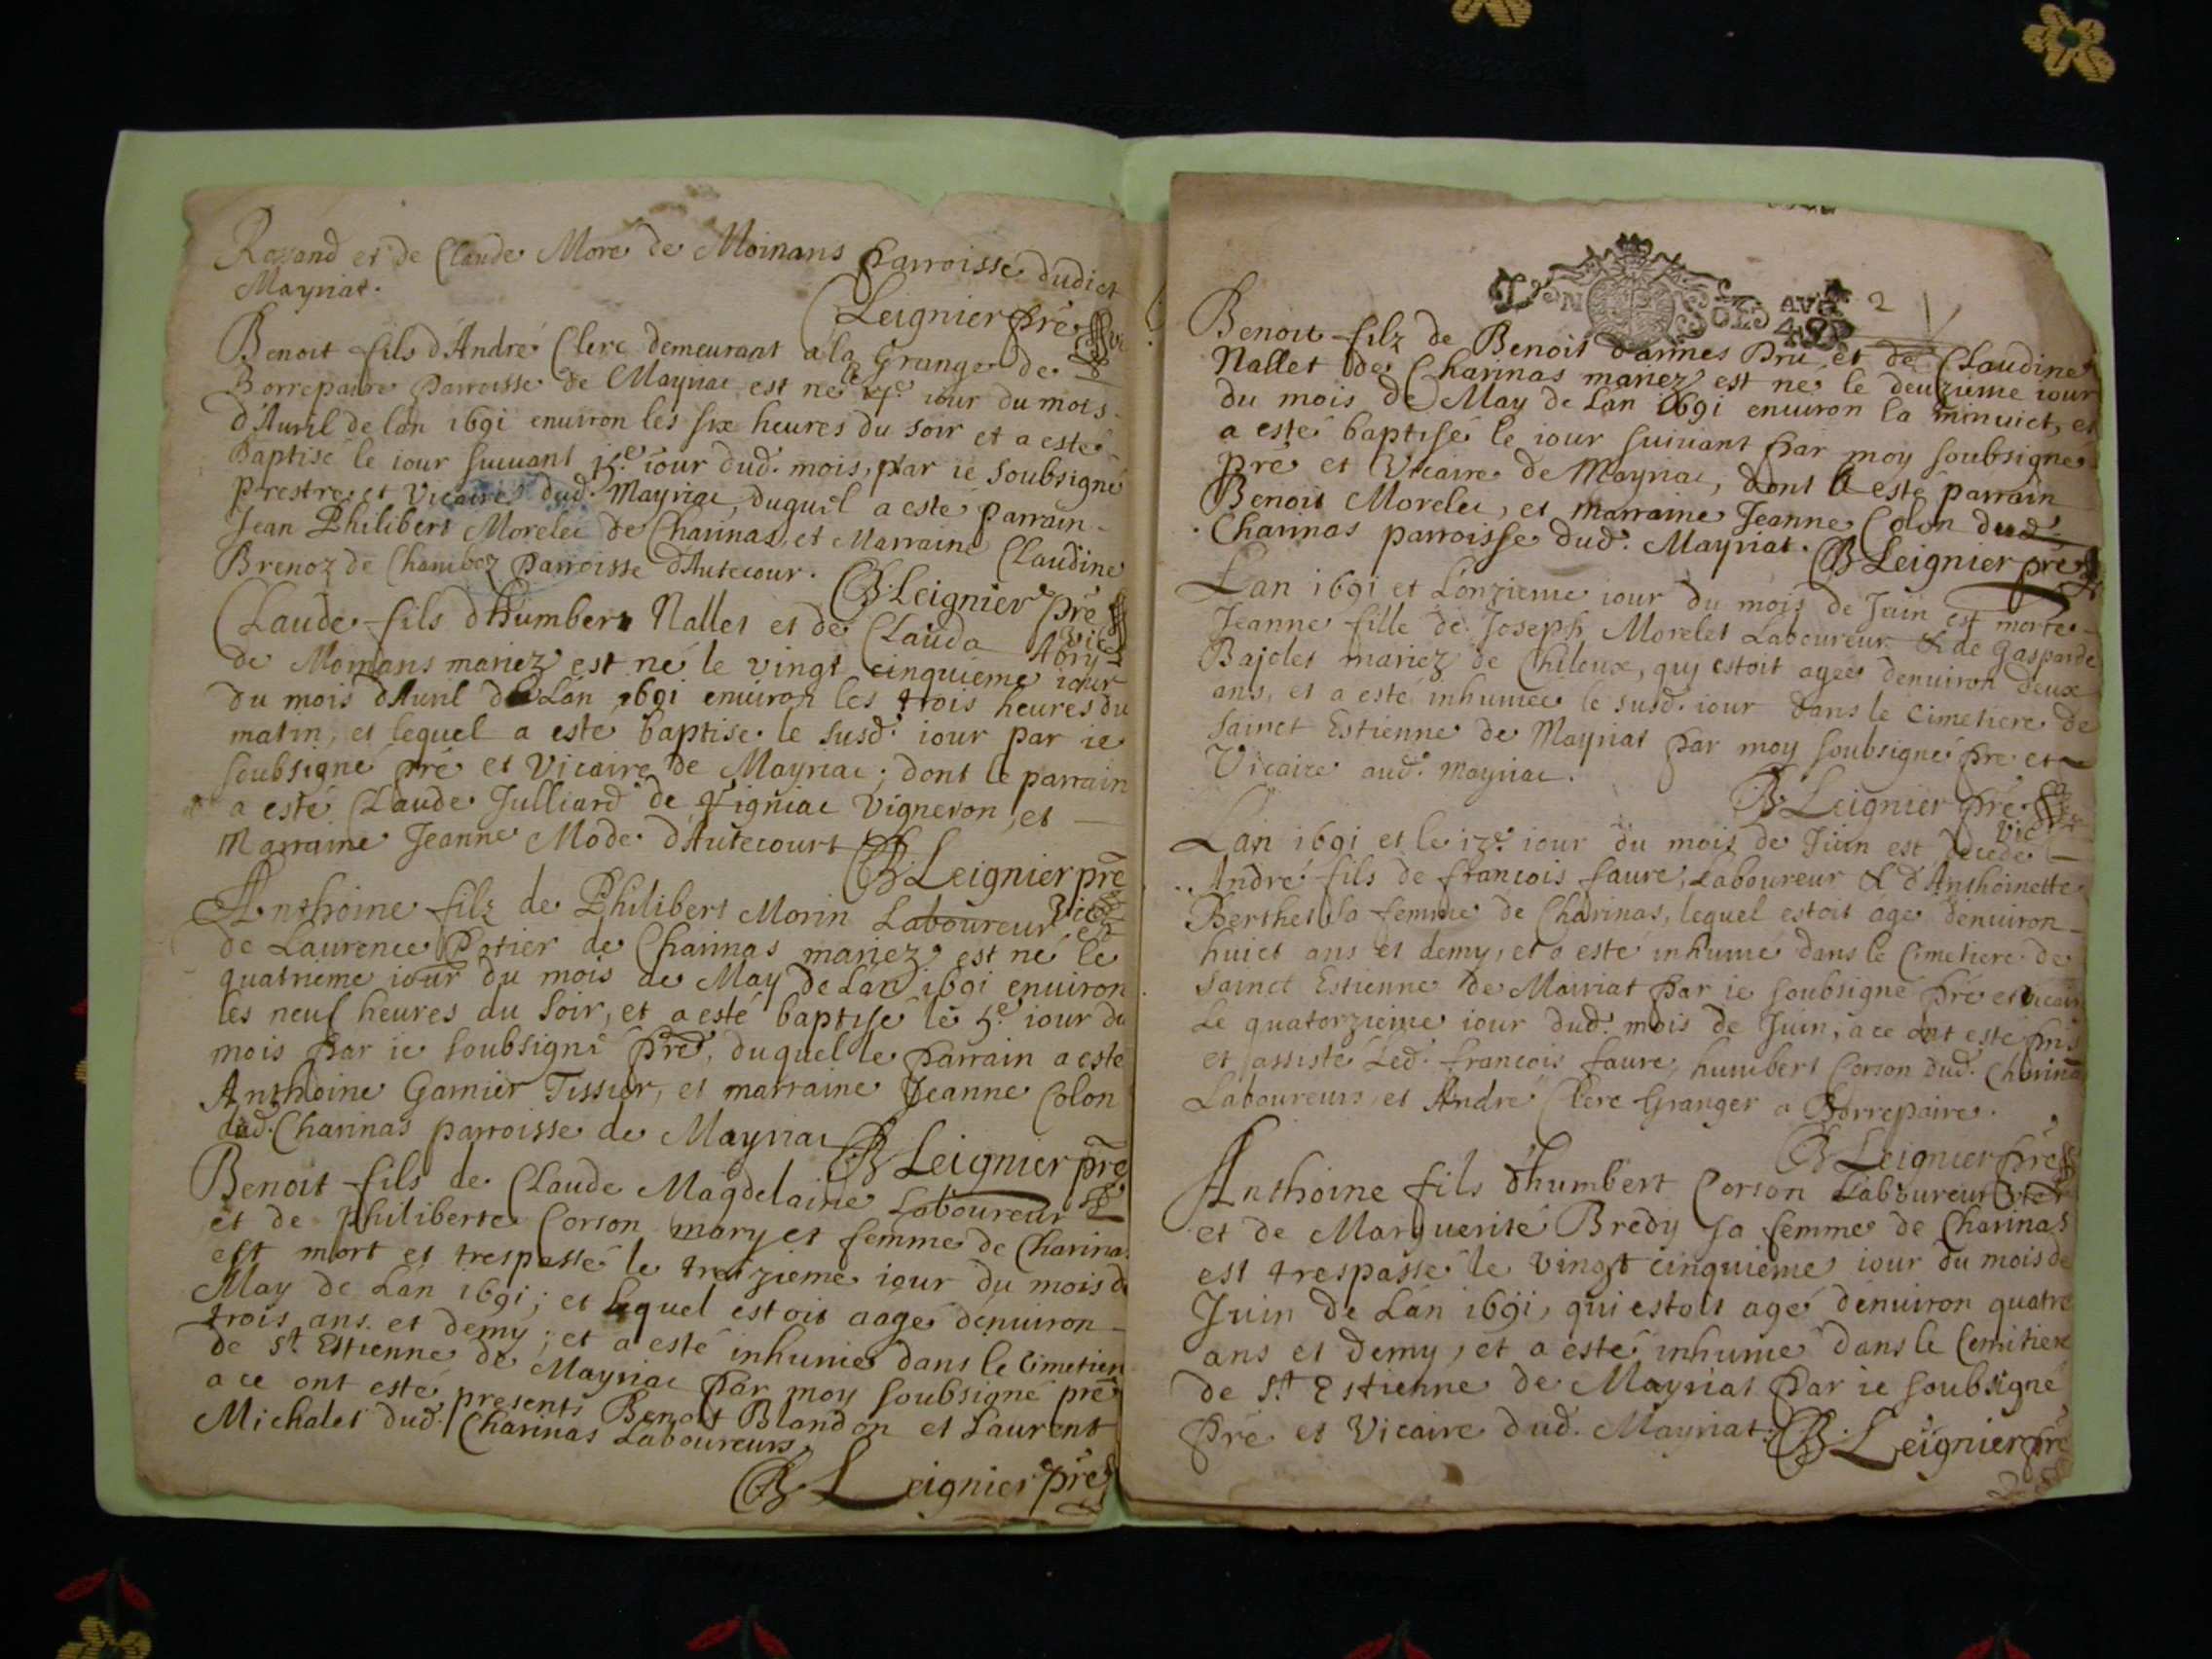 Rovand et de Claude More de Moinans parroisse dudict
Mayriat.
Leignier pre
Benoit fils d'André Clerc demeurant a la Grange de
Borrepaire parroisse de Mayriac est né le iour du mois
d'Auril de lan 1691 enuiron les six heures du soir et a esté
Baptisé le iour suiuant 15.e iour dud. mois, par ie soubsigné
prestre et Vicaire dud. Mayriac, duquel a esté parrain
Jean Philibert Morelec de Charinas, et Marraine Claudine
Brenoz de Chambez parroisse d'Autecour.
B Leignier pre
vic
Claude fils d'humbert Nallet et de Clauda Abry
de Moinans mariez est né le vingt cinquieme iour
du mois d'Auril de Lan 1691 enuiron les trois heures du
matin, et lequel a esté baptise le susd. iour par ie
soubsigné pre et Vicaire de Mayriac; dont le parrain
a esté Claude Julliard de Vigniac vigneron, et
Marraine Jeanne Mode d'Autecourt
B Leignier pre
Vic
Anthoine filz de Philibert Morin Laboureur et
de Laurence Potier de Charinas mariez est né le
quatrieme iour du mois de May de Lan 1691 enuiron
les neuf heures du soir, et a esté baptisé le 5.e iour du
mois par ie soubsigné pre, duquel le parrain a esté
Anthoine Garnier Tissier, et marraine Jeanne Colon
dud. Charinas parroisse de Mayriac
B Leignier pre
Benoit fils de Claude Magdelaine Laboureur
et de philiberte Corson mary et femme de Charinas
est mort et trespassé le treizieme iour du mois de
May de Lan 1691; et lequel estoit aagé denuiron
trois ans et demy; et a esté inhumé dans le Cimetiere
de St Estienne de Mayriac par moy soubsigné pre
a ce ont esté presents Benoit Blandon et Laurent
Michalet dud. Charinas Laboureurs,
B Leignier pre
AVR 2
Benoit filz de Benoit dannes Pru et de Claudine
Nallet de Charinas mariez est né le deuzieme iour
du mois de May de Lan 1691 enuiron la minuict, et
a esté baptisé le iour suiuant par moy soubsigné
pre et Vicaire de Mayriac, dont a esté parrain
Benoit Morelec, et marraine Jeanne Colon dud.
Charinas parroisse dud. Mayriat.
B Leignier pre
Lan 1691 et Lonzieme iour du mois de Juin est morte
Jeanne fille de Joseph Morelet Laboureur & de Gasparde
Bajolet mariez de Chileux, quy estoit agée denuiron deux
ans, et a esté inhumée le susd. iour dans le Cimetiere de
Sainct Estienne de Mayriat par moy soubsigné pre et
Vicaire aud. Mayriac.
B Leignier pre
vic
Lan 1691 et le 13.e iour du mois de Juin est decedé
André fils de francois faure, Laboureur & d'Anthoinette
Berthet sa femme de Charinas, lequel estoit agé denuiron
huict ans et demy, et a esté inhumé dans le Cimetiere de
Sainct Estienne de Mairiat par ie soubsigné pre et vicaire
Le quatorzieme iour dud. mois de Juin, a ce ont esté pns
et assisté Led. francois faure, humbert Corson dud. Charinas
Laboureurs, et André Clerc Granger a Borrepaire.
B Leignier pre
Anthoine fils d'humbert Corson Laboureur
et de Marguerite Bredy sa femme de Charinas
est trespassé le vingt cinquieme iour du mois de
Juin de Lan 1691, qui estoit agé denuiron quatre
ans et demy, et a esté inhumé dans le Cemitiere
de St Estienne de Mayriat par ie soubsigné
Pre et Vicaire dud. Mayriat.
B Leignier pre